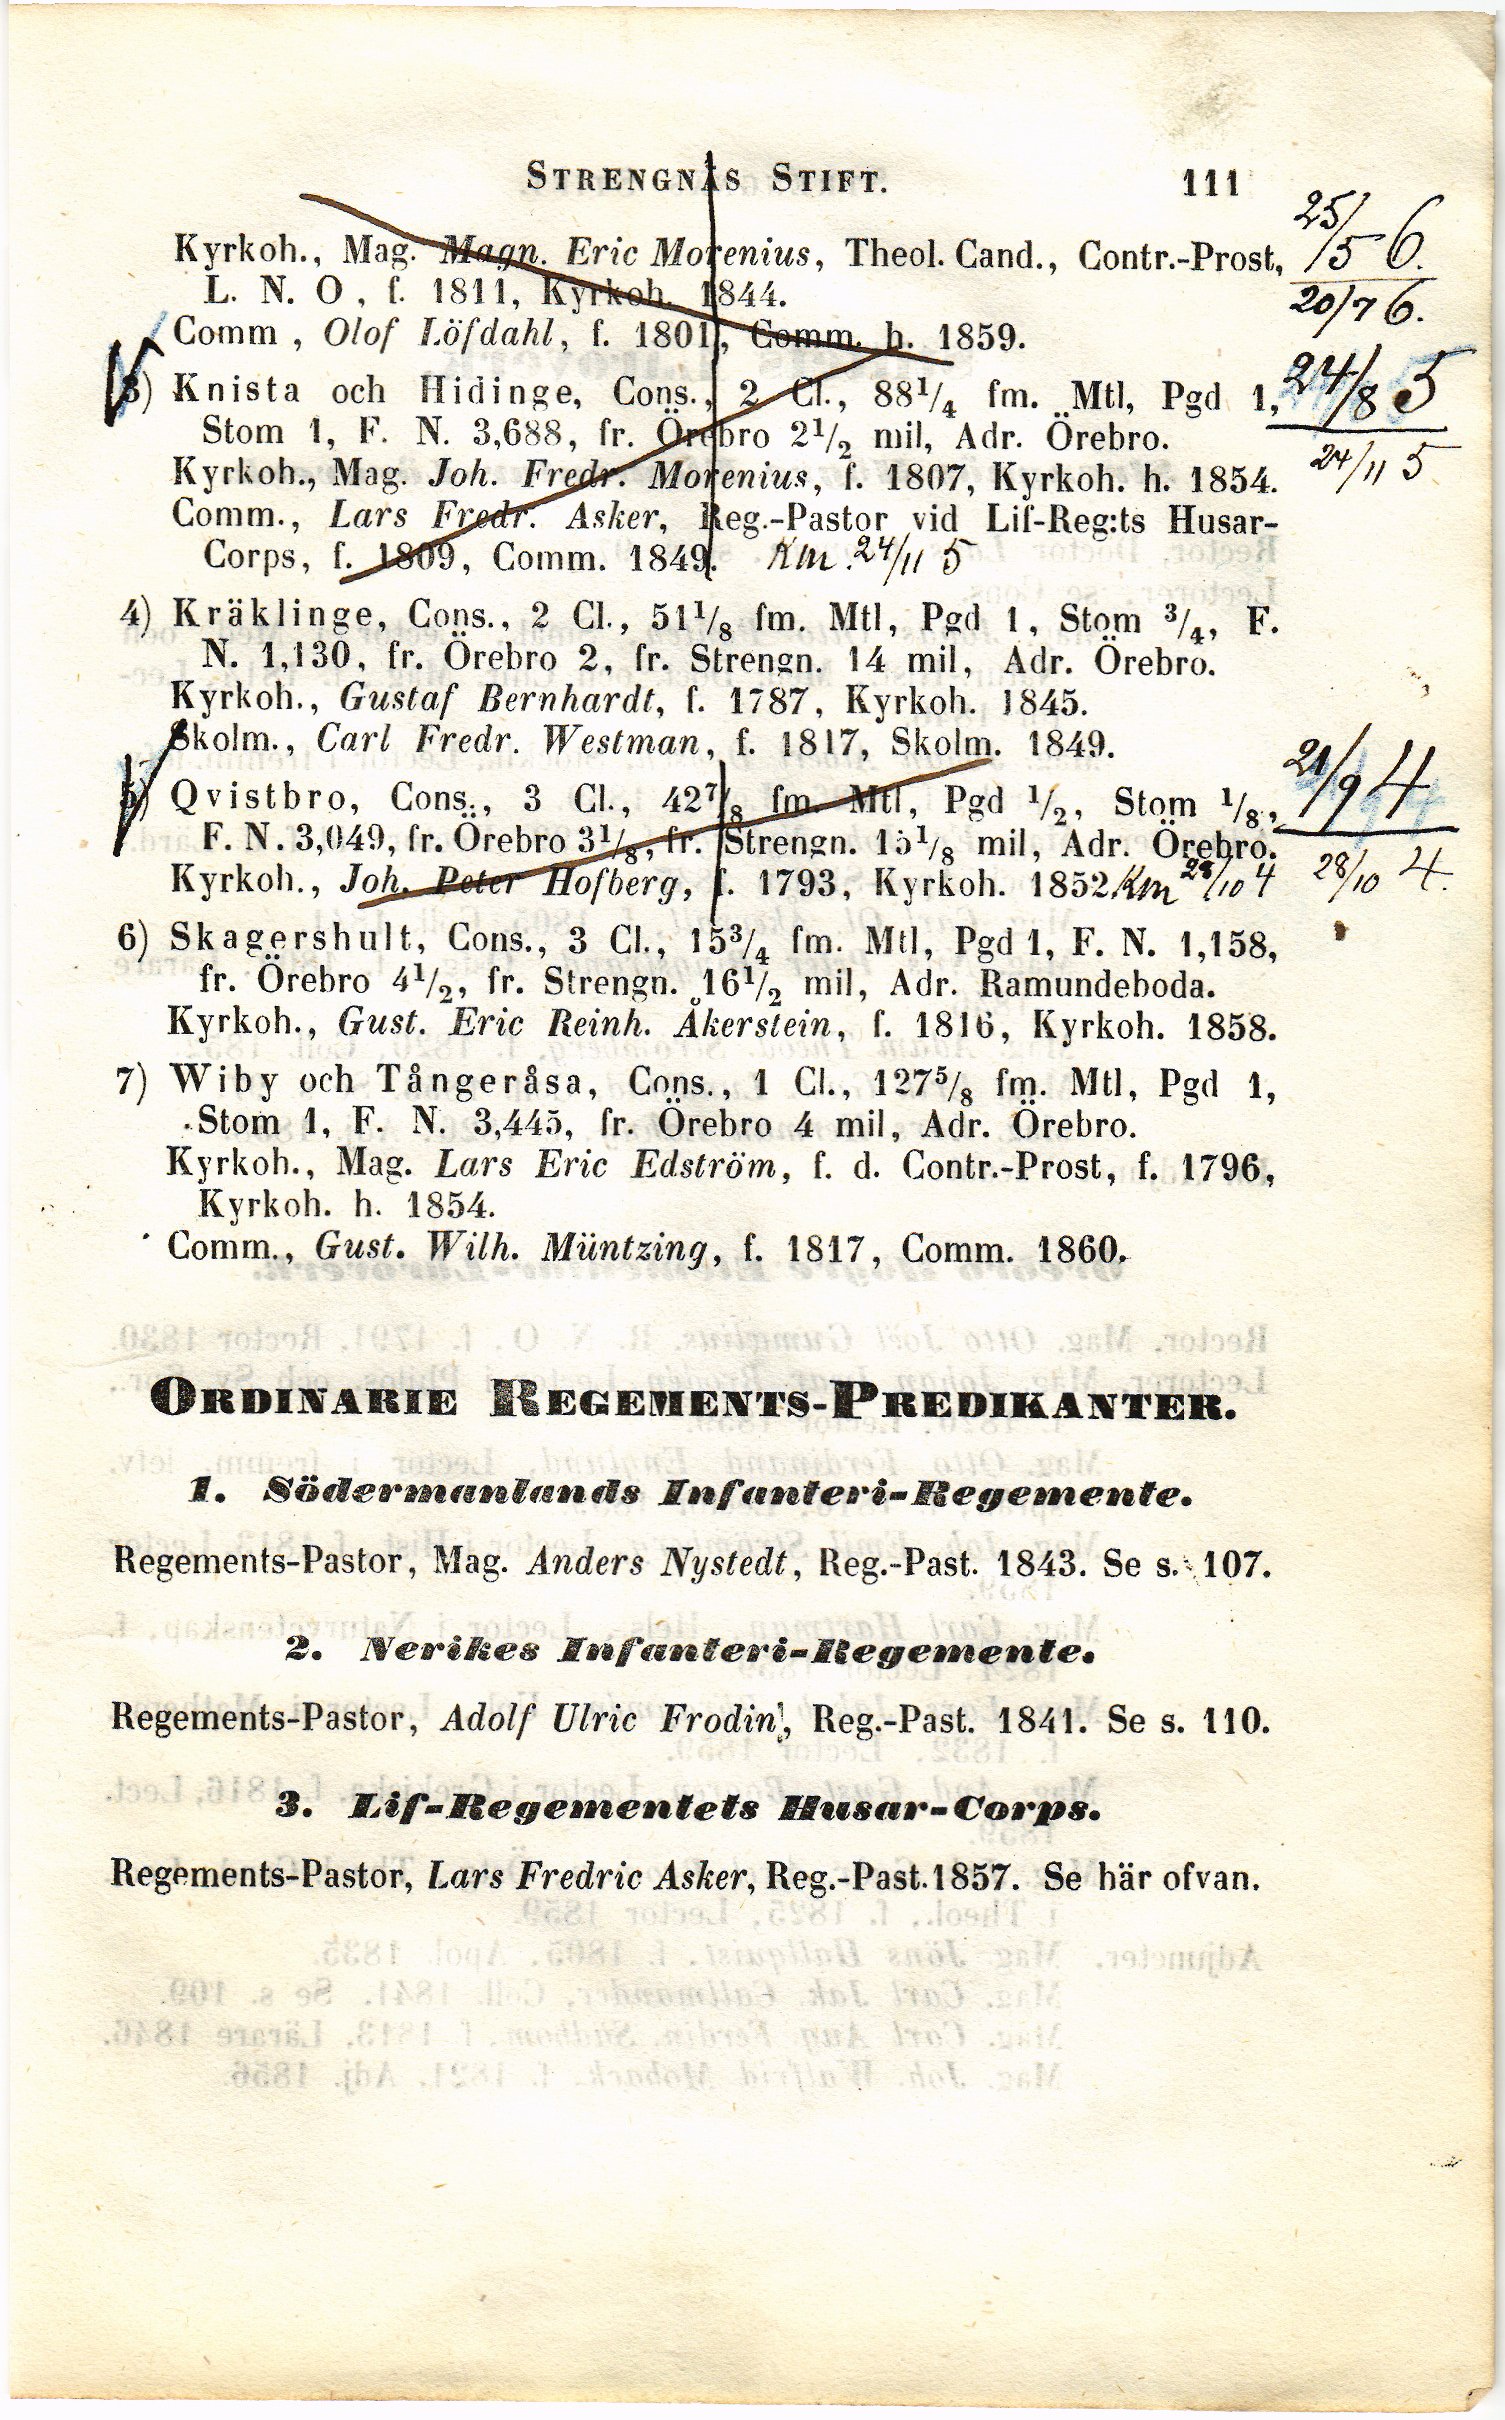 STRENGNÄS STIFT. 111
Kyrkoh., Mag. Magn. Eric Morenius, Theol. Cand., Contr.-Prost, 25/5 6.
L. N. O, f. 1811, Kyrkoh. 1844. 20/7 6.
Comm, Olof Löfdahl, f. 1801, Comm. h. 1859.
3) Knista och Hidinge, Cons., 2 Cl., 88 1/4 fm. Mtl, Pgd 1, 24/8 5
Stom 1, F. N. 3,688, fr. Örebro 2 1/2 mil, Adr. Örebro.
Kyrkoh., Mag. Joh. Fredr. Morenius, f. 1807, Kyrkoh. h. 1854. 24/11 5
Comm., Lars Fredr. Asker, Reg.-Pastor vid Lif-Reg:ts Husar-
Corps, f. 1809, Comm. 1849. Km. 24/11 5
4) Kräklinge, Cons., 2 Cl., 51 1/8 fm. Mtl, Pgd 1, Stom 3/4, F.
N. 1,130, fr. Örebro 2, fr. Strengn. 14 mil, Adr. Örebro.
Kyrkoh., Gustaf Bernhardt, f. 1787, Kyrkoh. 1845.
Skolm., Carl Fredr. Westman, f. 1817, Skolm. 1849.
5) Qvistbro, Cons., 3 Cl., 42 7/8 fm. Mtl, Pgd 1/2, Stom 1/8, 21/9 4
F. N. 3,049, fr. Örebro 3 1/8, fr. Strengn. 15 1/8 mil, Adr. Örebro.
Kyrkoh., Joh. Peter Hofberg, f. 1793, Kyrkoh. 1852. Km 28/10 4 28/10 4.
6) Skagershult, Cons., 3 Cl., 15 3/4 fm. Mtl, Pgd 1, F. N. 1,158,
fr. Örebro 4 1/2, fr. Strengn. 16 1/2 mil, Adr. Ramundeboda.
Kyrkoh., Gust. Eric Reinh. Åkerstein, f. 1816, Kyrkoh. 1858.
7) Wiby och Tångeråsa, Cons., 1 Cl., 127 5/8 fm. Mtl, Pgd 1,
Stom 1, F. N. 3,445, fr. Örebro 4 mil, Adr. Örebro.
Kyrkoh., Mag. Lars Eric Edström, f. d. Contr.-Prost, f. 1796,
Kyrkoh. h. 1854.
Comm., Gust. Wilh. Müntzing, f. 1817, Comm. 1860.
ORDINARIE REGEMENTS-PREDIKANTER.
1. Södermanlands Infanteri-Regemente.
Regements-Pastor, Mag. Anders Nystedt, Reg.-Past. 1843. Se s. 107.
2. Nerikes Infanteri-Regemente.
Regements-Pastor, Adolf Ulric Frodin, Reg.-Past. 1841. Se s. 110.
3. Lif-Regementets Husar-Corps.
Regements-Pastor, Lars Fredric Asker, Reg.-Past. 1857. Se här ofvan.